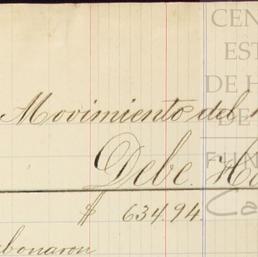 CEN
EST
DE H
DE
FUN
Ca
Movimiento del
Debe. Ha
$ 63494.
bonaron